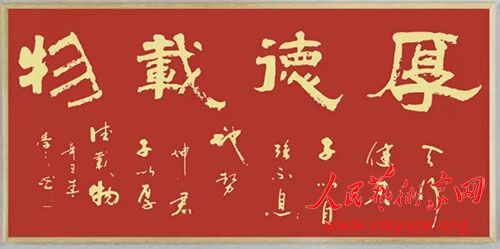 厚德載物
天行
健君
子以自
强不息
地势
坤君
子以厚
德載物
人民藝術家网